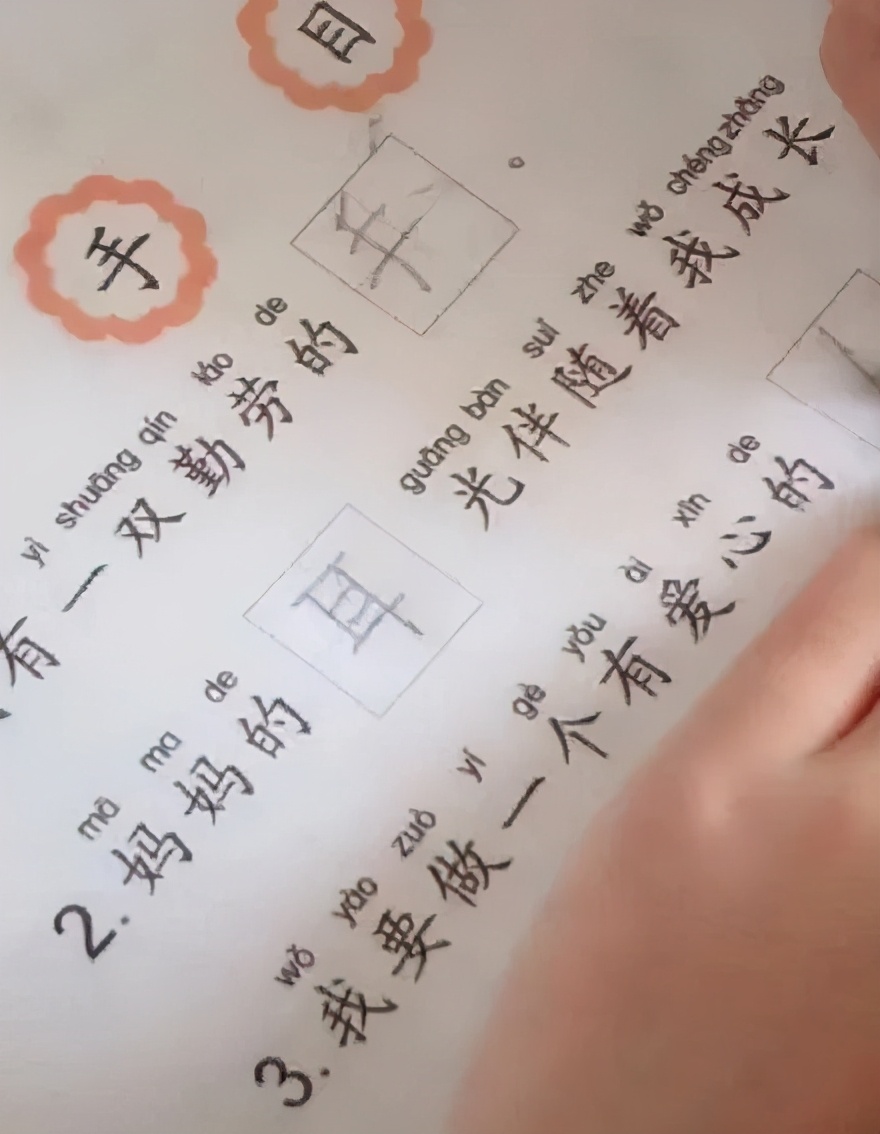 手 目
yì shuāng qín láo de
有一双勤劳的手。
mā ma de guāng bàn suí zhe wǒ chéng zhǎng
2.妈妈的耳光伴随着我成长
wǒ yào zuò yí gè yǒu ài xīn de
3.我要做一个有爱心的